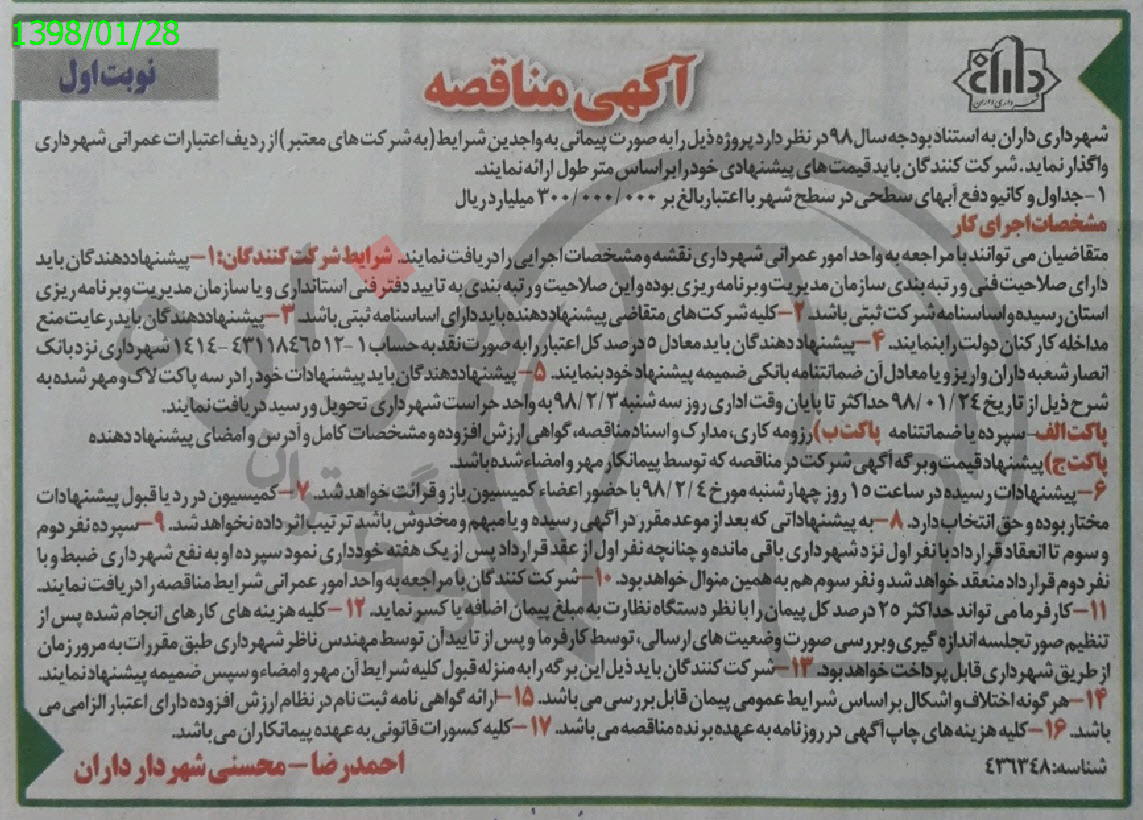 1398/01/28
نوبت اول
آگهی مناقصه
داران
شهرداری داران
شهرداری داران به استناد بودجه سال ۹۸ در نظر دارد پروژه ذیل را به صورت پیمانی به واجدین شرایط (به شرکت های معتبر) از ردیف اعتبارات عمرانی شهرداری
واگذار نماید. شرکت کنندگان باید قیمت های پیشنهادی خود را براساس متر طول ارائه نمایند.
۱- جداول و کانیو دفع آبهای سطحی در سطح شهر با اعتبار بالغ بر ۳۰۰/۰۰۰/۰۰۰ میلیارد ریال
مشخصات اجرای کار
متقاضیان می توانند با مراجعه به واحد امور عمرانی شهرداری نقشه و مشخصات اجرایی را دریافت نمایند. شرایط شرکت کنندگان: ۱- پیشنهاد دهندگان باید
دارای صلاحیت فنی و رتبه بندی سازمان مدیریت و برنامه ریزی بوده و این صلاحیت و رتبه بندی به تایید دفتر فنی استانداری و یا سازمان مدیریت و برنامه ریزی
استان رسیده و اساسنامه شرکت ثبتی باشد. ۲- کلیه شرکت های متقاضی پیشنهاد دهنده باید دارای اساسنامه ثبتی باشد. ۳- پیشنهاد دهندگان باید رعایت منع
مداخله کارکنان دولت را بنمایند. ۴- پیشنهاد دهندگان باید معادل ۵ درصد کل اعتبار را به صورت نقد به حساب ۱-۴۳۱۱۸۴۶۵۱۲-۱۴۱۴ شهرداری نزد بانک
انصار شعبه داران واریز و یا معادل آن ضمانتنامه بانکی ضمیمه پیشنهاد خود بنمایند. ۵- پیشنهاد دهندگان باید پیشنهادات خود را در سه پاکت لاک و مهر شده به
شرح ذیل از تاریخ ۹۸/۰۱/۲۴ حداکثر تا پایان وقت اداری روز سه شنبه ۹۸/۲/۳ به واحد حراست شهرداری تحویل و رسید دریافت نمایند.
پاکت الف- سپرده یا ضمانتنامه پاکت ب) رزومه کاری، مدارک و اسناد مناقصه، گواهی ارزش افزوده و مشخصات کامل و آدرس و امضای پیشنهاد دهنده
پاکت ج) پیشنهاد قیمت و برگه آگهی شرکت در مناقصه که توسط پیمانکار مهر و امضاء شده باشد.
۶- پیشنهادات رسیده در ساعت ۱۵ روز چهارشنبه مورخ ۹۸/۲/۴ با حضور اعضاء کمیسیون باز و قرائت خواهد شد. ۷- کمیسیون در رد یا قبول پیشنهادات
مختار بوده و حق انتخاب دارد. ۸- به پیشنهاداتی که بعد از موعد مقرر در آگهی رسیده و یا مبهم و مخدوش باشد ترتیب اثر داده نخواهد شد. ۹- سپرده نفر دوم
و سوم تا انعقاد قرارداد با نفر اول نزد شهرداری باقی مانده و چنانچه نفر اول از عقد قرارداد پس از یک هفته خودداری نمود سپرده او به نفع شهرداری ضبط و با
نفر دوم قرارداد منعقد خواهد شد و نفر سوم هم به همین منوال خواهد بود. ۱۰- شرکت کنندگان با مراجعه به واحد امور عمرانی شرایط مناقصه را دریافت نمایند.
۱۱- کارفرما می تواند حداکثر ۲۵ درصد کل پیمان را با نظر دستگاه نظارت به مبلغ پیمان اضافه یا کسر نماید. ۱۲- کلیه هزینه های کارهای انجام شده پس از
تنظیم صورتجلسه اندازه گیری و بررسی صورت وضعیت های ارسالی، توسط کارفرما و پس از تایید آن توسط مهندس ناظر شهرداری طبق مقررات به مرور زمان
از طریق شهرداری قابل پرداخت خواهد بود. ۱۳- شرکت کنندگان باید ذیل این برگه را به منزله قبول کلیه شرایط آن مهر و امضاء و سپس ضمیمه پیشنهاد نمایند.
۱۴- هر گونه اختلاف و اشکال بر اساس شرایط عمومی پیمان قابل بررسی می باشد. ۱۵- ارائه گواهی نامه ثبت نام در نظام ارزش افزوده دارای اعتبار الزامی می
باشد. ۱۶- کلیه هزینه های چاپ آگهی در روزنامه به عهده برنده مناقصه می باشد. ۱۷- کلیه کسورات قانونی به عهده پیمانکاران می باشد.
شناسه: ۴۳۶۳۴۸
احمدرضا - محسنی شهردار داران